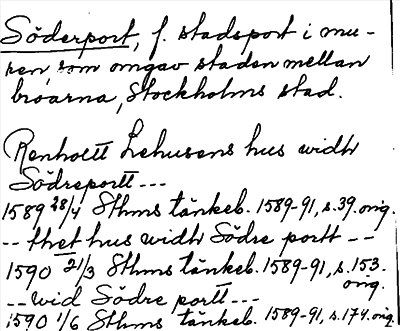 Söderport, f. stadsport i mu-
ren, som omgav staden mellan
broarna, Stockholms stad.
Renholtt Lehusens hus widh
Södreportt ---
1589 28/4 Sthms tänkeb. 1589-91, s. 39. orig.
-- thet hus widh Södre portt --
1590 21/3 Sthms tänkeb. 1589-91, s. 153.
orig.
-- wid Södre portt ---
1590 1/6 Sthms tänkeb. 1589-91, s. 174. orig.